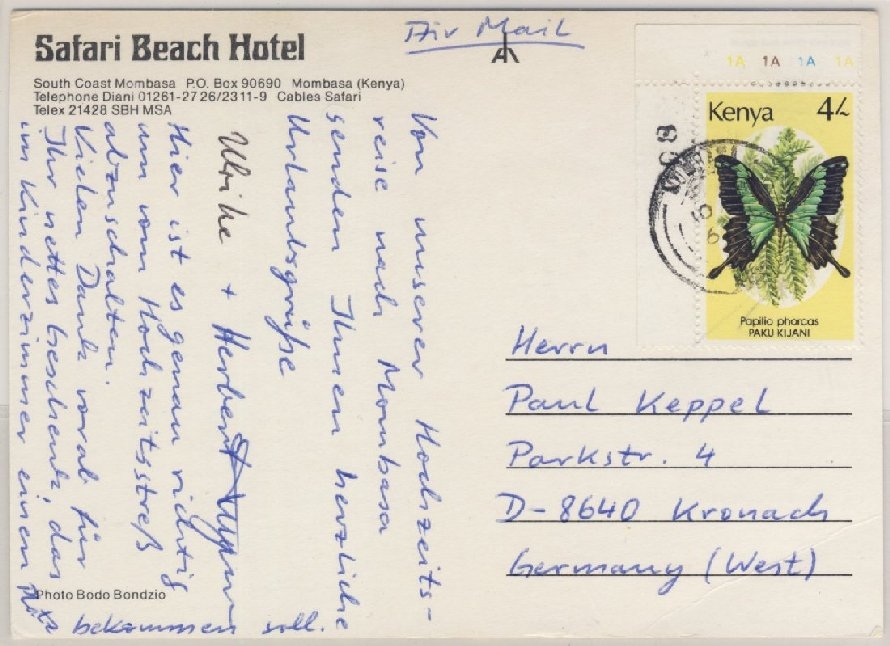 Safari Beach Hotel
South Coast Mombasa P.O. Box 90690 Mombasa (Kenya)
Telephone Diani 01261-27 26/2311-9 Cables Safari
Telex 21428 SBH MSA
Air Mail
1A 1A 1A 1A
Kenya 4/-
Papilio pharcas
PAKU KIJANI
Von unserer Hochzeits-
reise nach Mombasa
senden Ihnen herzliche
Urlaubsgrüße
Ulrike + Herbert
Hier ist es genau richtig
um vom Hochzeitsstreß
abzuschalten.
Vielen Dank vorab für
Ihr nettes Geschenk, das
im Kinderzimmer einen
Platz bekommen soll.
Herrn
Paul Keppel
Parkstr. 4
D-8640 Kronach
Germany (West)
Photo Bodo Bondzio